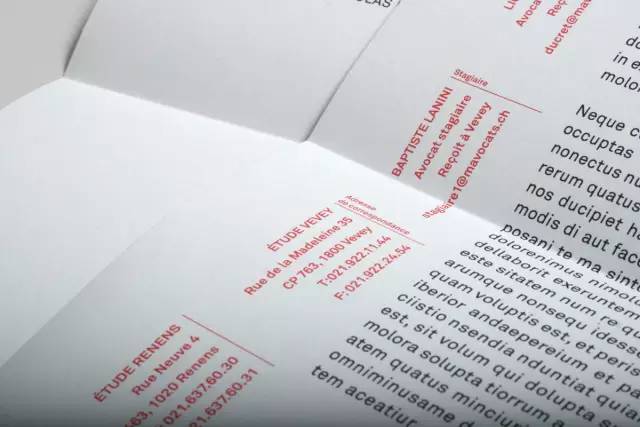 OLAS
Li
Avocat s
Reçoit
ducret@mavoc
Stagiaire
BAPTISTE LANINI
Avocat stagiaire
Reçoit à Vevey
stagiaire1@mavocats.ch
Adresse
de correspondance
ÉTUDE VEVEY
Rue de la Madeleine 35
CP 763, 1800 Vevey
T:021.922.11.44
F: 021.922.24.54
ÉTUDE RENENS
Rue Neuve 4
63, 1020 Renens
021.637.60.30
021.637.60.31
in e
molor
Neque c
occuptas
nonectus nu
rerum quatus
nos ducipiet h
modis di aut face
posani te ma sint
dolorenimus nimo
dellaborit exerunte
este sitatem num re q
arumque nonsequ i
quam voluptis est, et
iberior andaepereium et p
ciistio nsendia nduntiat quia
est, sit volum qui dolupta s
molora solupta tiorrum a
atem quatus minciuri
omniminusame d
tem aceatiur